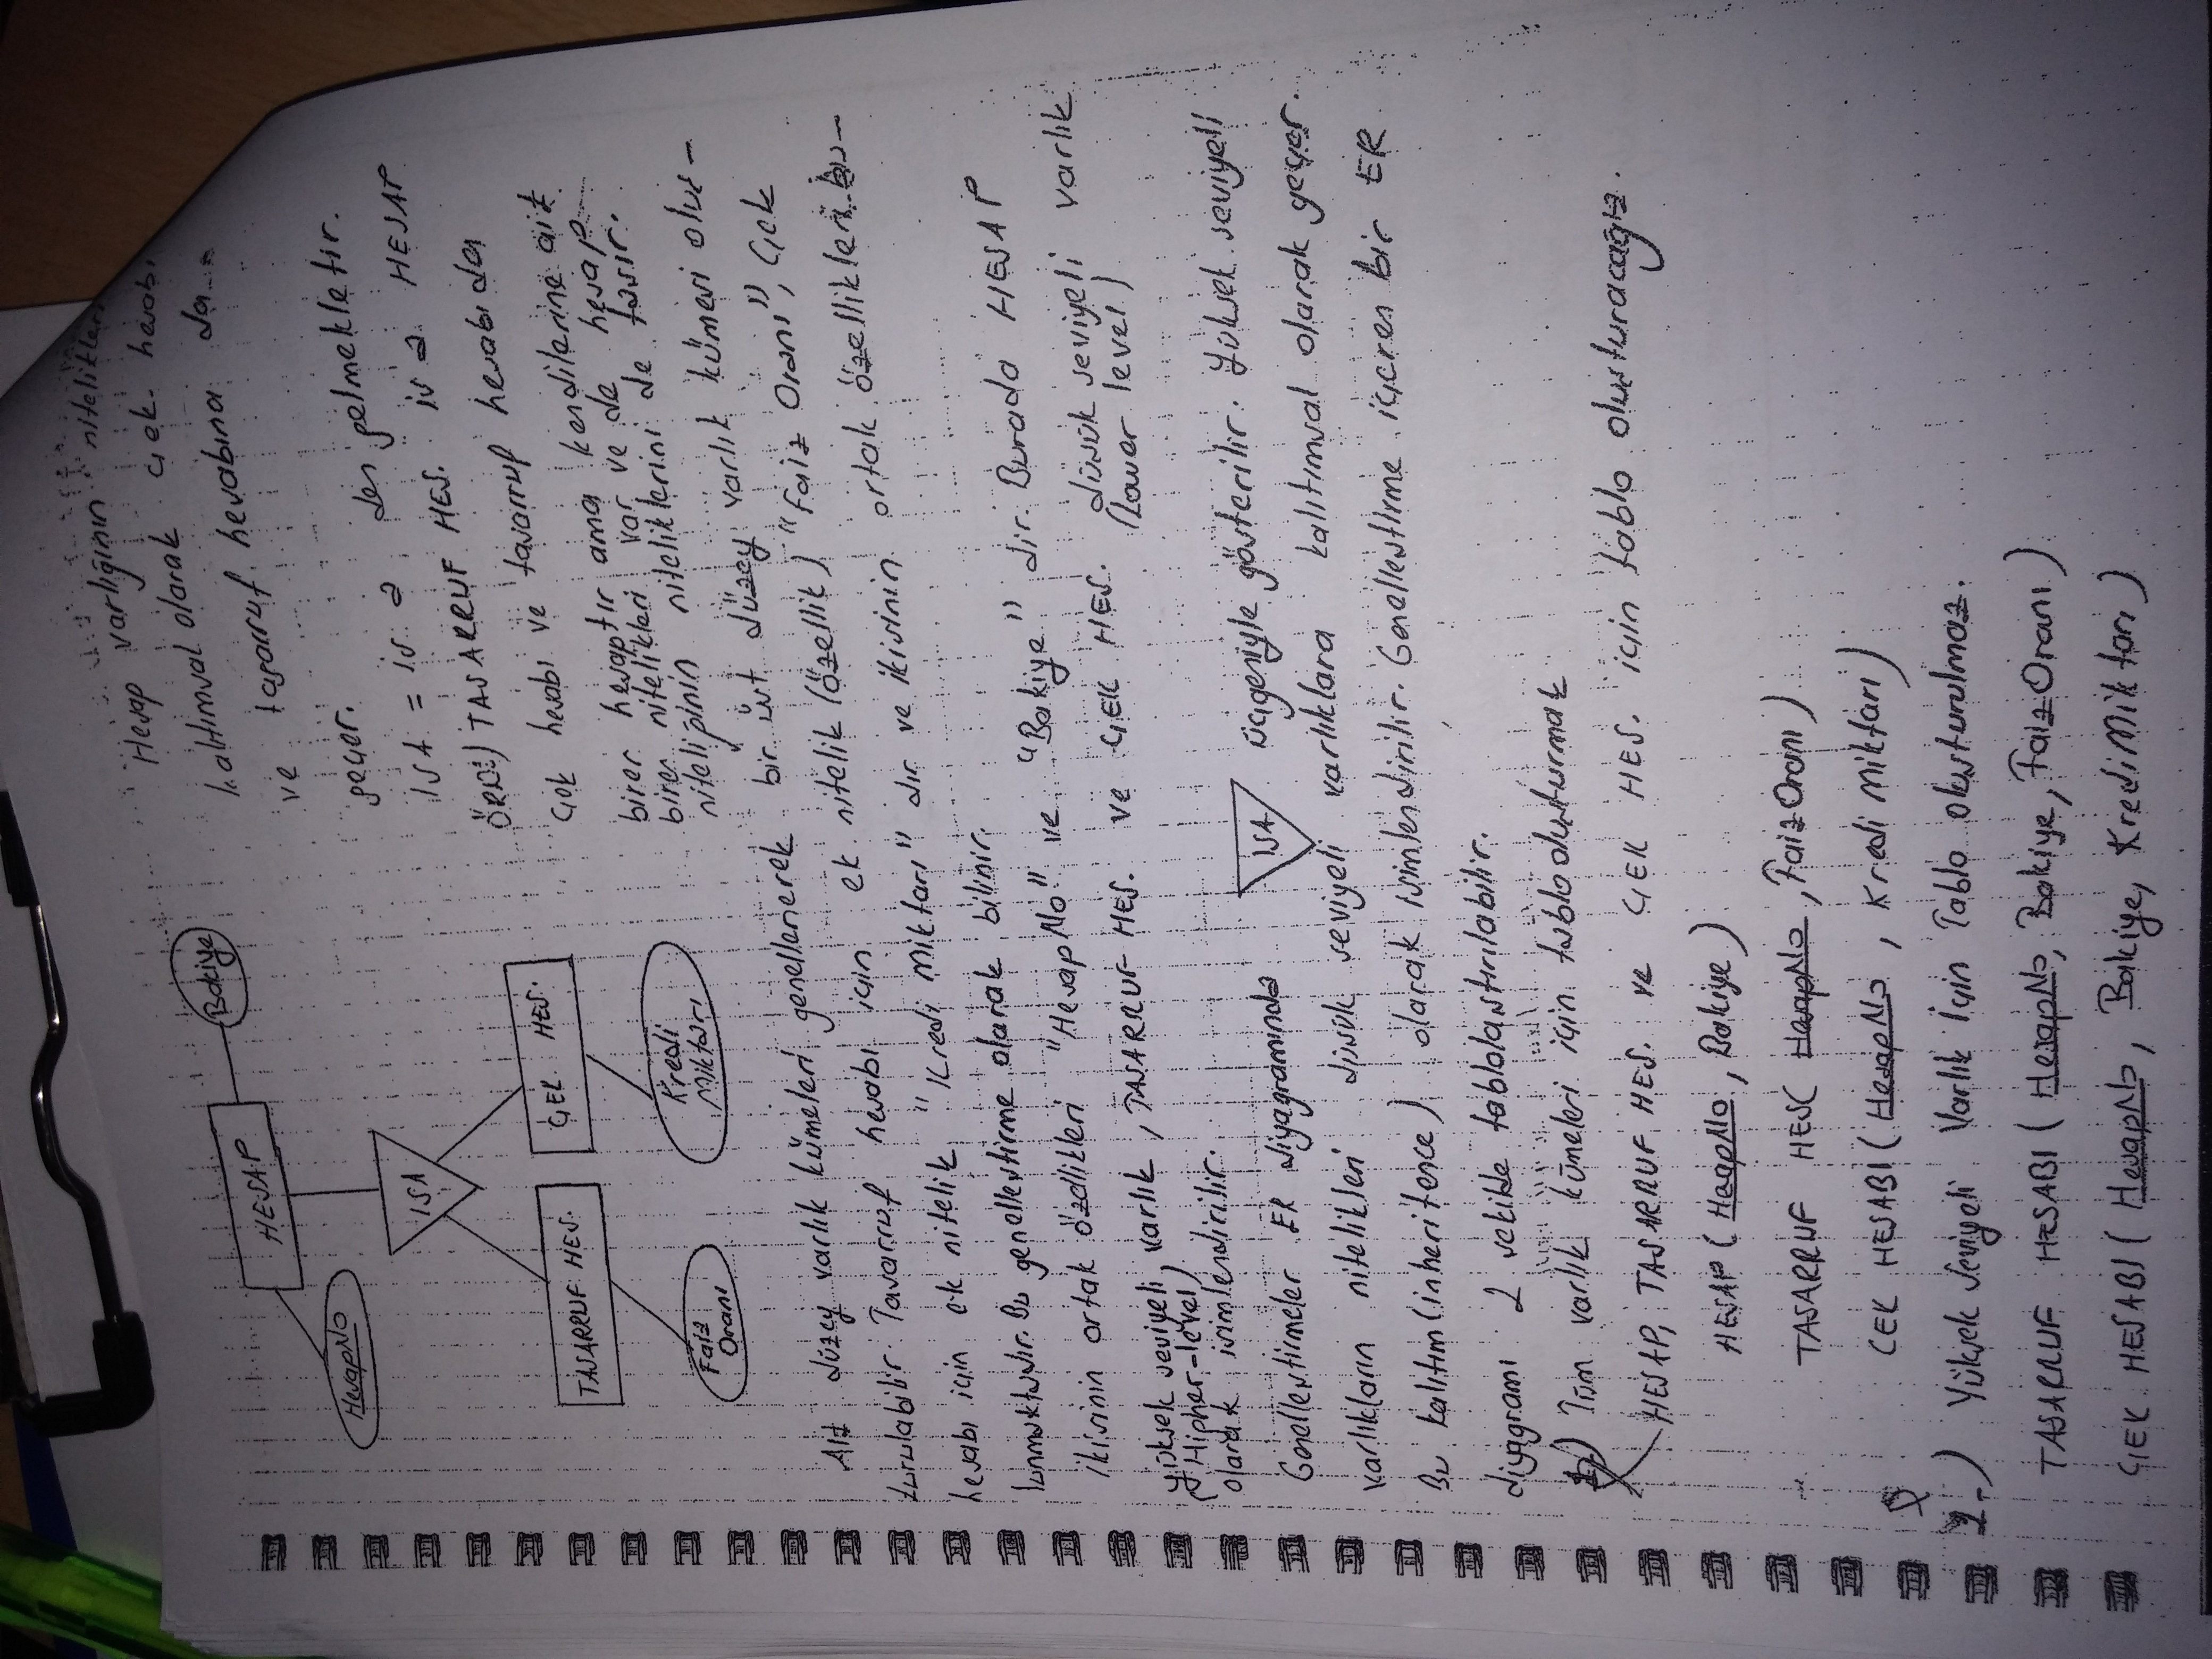 HESAP
HesapNo
Bakiye
ISA
TASARRUF HES.
ÇEK HES.
Faiz
Oranı
Kredi
Miktarı
Hesap varlığının nitelikleri
kalıtımsal olarak çek hesabı
ve tasarruf hesabına da
geçer.
ISA = is a dan gelmektedir.
ÖRN:) TASARRUF HES. is a HESAP
Çek hesabı ve tasarruf hesabı da
birer hesaptır ama kendilerine ait
birer nitelikleri var ve de hesap
niteliğinin niteliklerini de taşır.
Alt düzey varlık kümeleri genellenerek bir üst düzey varlık kümesi oluş-
turulabilir. Tasarruf hesabı için ek nitelik (özellik) "Faiz Oranı", Çek
hesabı için ek nitelik "Kredi Miktarı" dır ve ikisinin ortak özellikleri bu-
lunmaktadır. Bu genelleştirme olarak bilinir.
İkisinin ortak özellikleri "HesapNo" ve "Bakiye" dir. Burada HESAP
yüksek seviyeli varlık, TASARRUF HES. ve ÇEK HES. düşük seviyeli varlık
(Higher-level) (lower level)
olarak isimlendirilir.
Genelleştirmeler ER diyagramında ISA üçgeniyle gösterilir. Yüksek seviyeli
varlıkların nitelikleri düşük seviyeli varlıklara kalıtımsal olarak geçer.
Bu kalıtım (inheritence) olarak isimlendirilir. Genelleştirme içeren bir ER
diyagramı 2 şekilde tablolaştırılabilir.
1-) Tüm varlık kümeleri için tablo oluşturmak
HESAP, TASARRUF HES. ve ÇEK HES. için tablo oluşturacağız.
HESAP (HesapNo, Bakiye)
TASARRUF HES( HesapNo, FaizOranı)
ÇEK HESABI( HesapNo, Kredi miktarı)
2-) Yüksek Seviyeli Varlık İçin Tablo oluşturulmaz.
TASARRUF HESABI ( HesapNo, Bakiye, FaizOranı)
ÇEK HESABI ( HesapNo, Bakiye, KrediMiktarı)